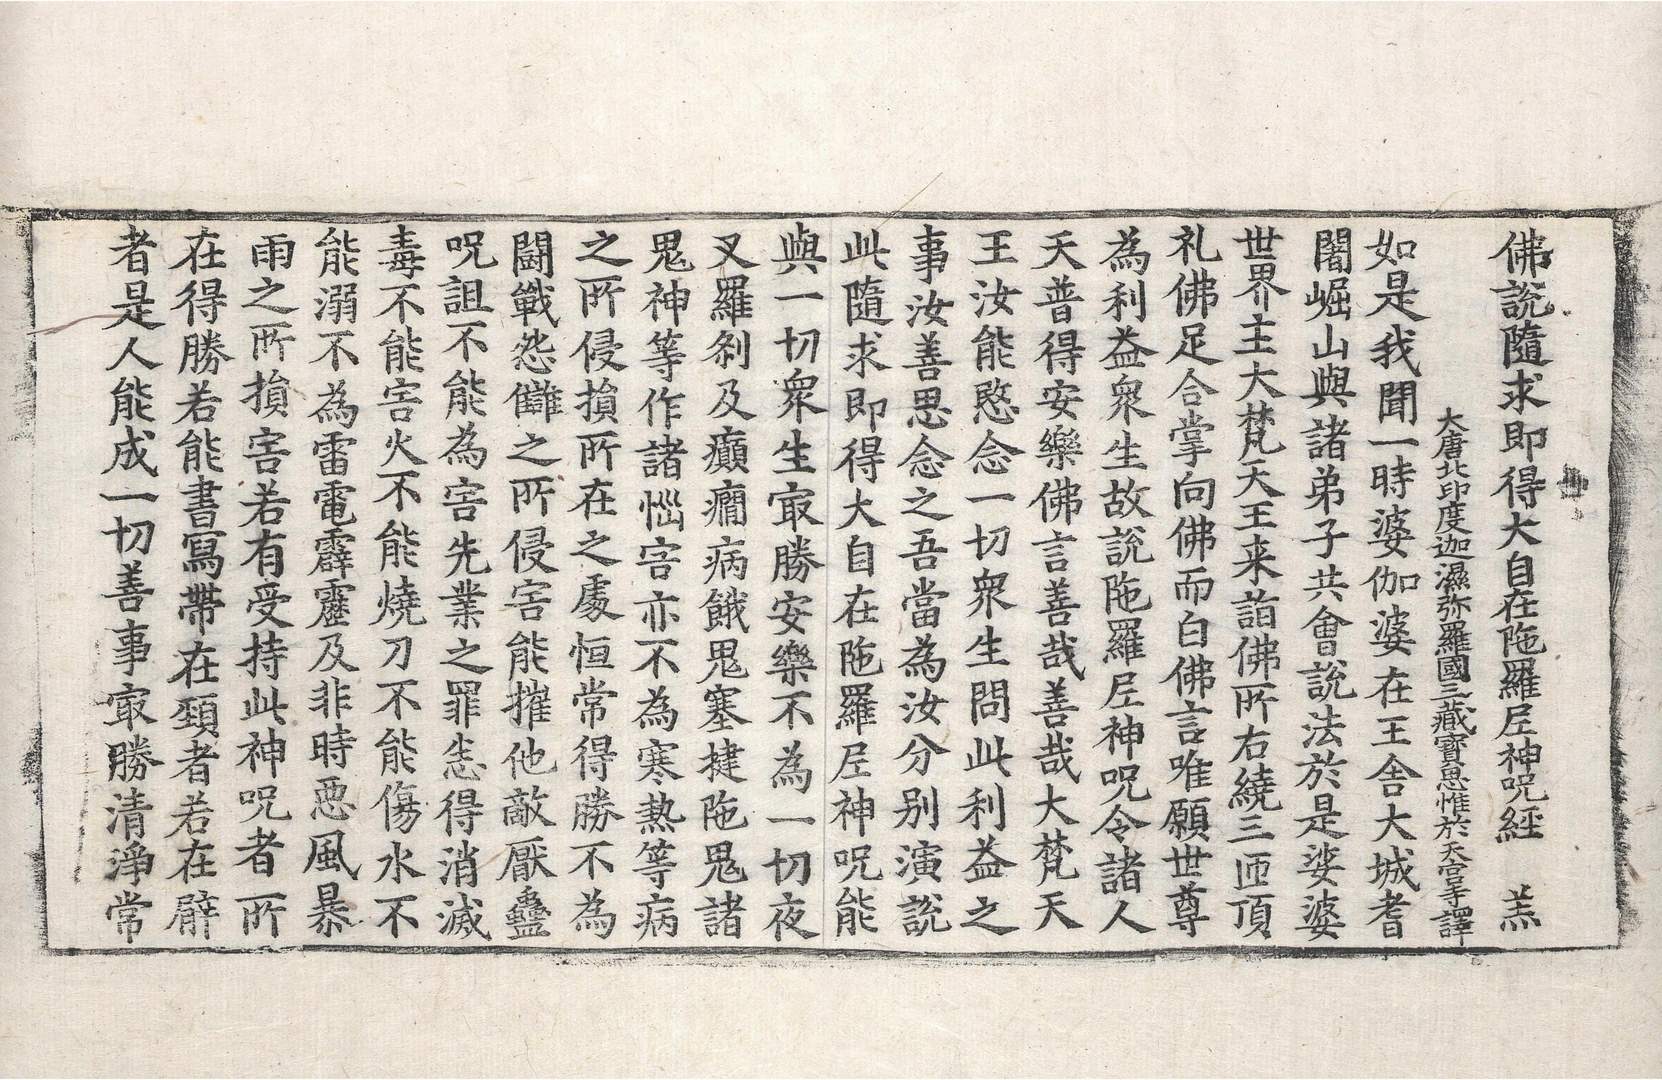 佛說隨求即得大自在陁羅尼神呪經　羔
大唐北印度迦濕弥羅國三藏寶思惟於天宮寺譯
如是我聞一時婆伽婆在王舍大城耆
闍崛山與諸弟子共會說法於是娑婆
世界主大梵天王来詣佛所右繞三匝頂
礼佛足合掌向佛而白佛言唯願世尊
為利益衆生故說陁羅尼神呪令諸人
天普得安樂佛言善哉善哉大梵天
王汝能愍念一切衆生問此利益之
事汝善思念之吾當為汝分别演說
此隨求即得大自在陁羅尼神呪能
與一切衆生㝡勝安樂不為一切夜
叉羅剎及癲癇病餓鬼塞揵陁鬼諸
鬼神等作諸惱害亦不為寒熱等病
之所侵損所在之處恒常得勝不為
鬪戰怨讎之所侵害能摧他敵厭蠱
呪詛不能為害先業之罪悉得消滅
毒不能害火不能燒刀不能傷水不
能溺不為雷電霹靂及非時惡風暴
雨之所損害若有受持此神呪者所
在得勝若能書寫帶在頸者若在臂
者是人能成一切善事㝡勝清淨常